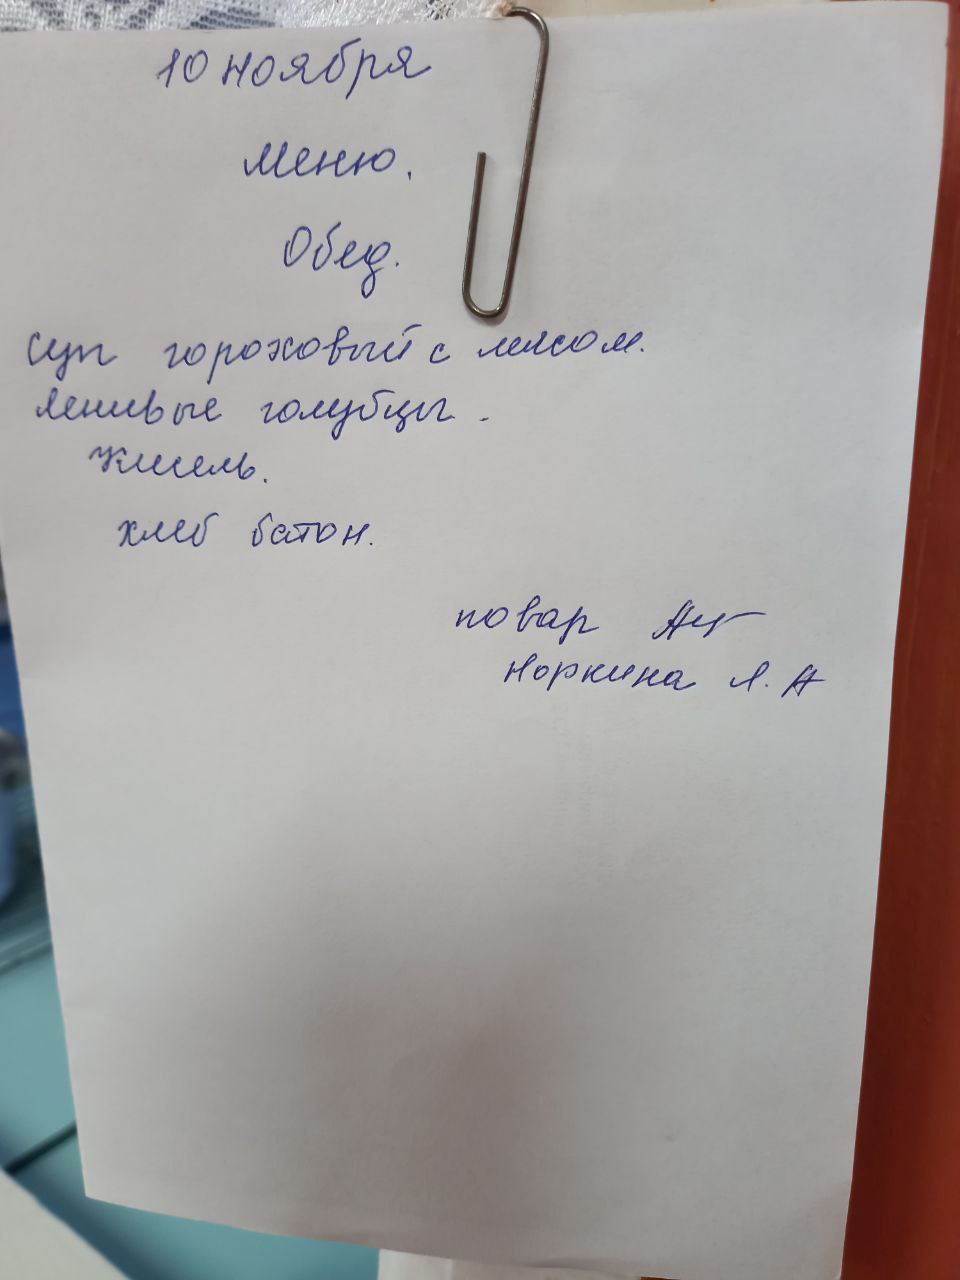 10 ноября
Меню.
Обед.
Суп гороховый с мясом.
Ленивые голубцы.
Кисель.
хлеб батон.
повар
Норкина Л.А